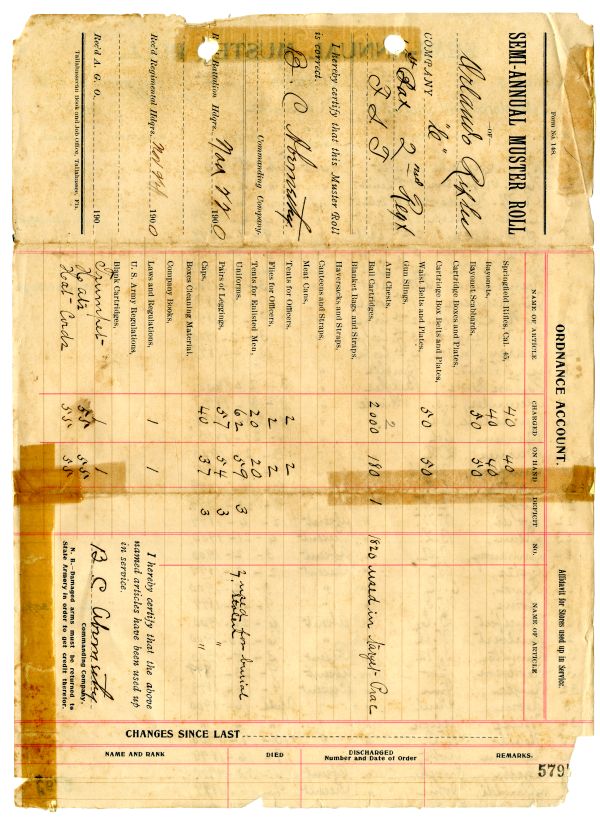 Form No. 148.
SEMI-ANNUAL MUSTER ROLL
—OF—
Orlando Rifles
COMPANY "C"
1st Bat 2nd Regt
F S T
I hereby certify that this Muster Roll
is correct.
B. C. Abernethy
Commanding Company.
Battalion Hdqrs. Nov 22 1900
Rec'd Regimental Hdqrs. 1900
Rec'd A. G. O. 190
Tallahasseean Book and Job Office, Tallahassee, Fla.
ORDNANCE ACCOUNT.
Affidavit for Stores used up in Service.
NAME OF ARTICLE CHARGED ON HAND DEFICIT NO. NAME OF ARTICLE
Springfield Rifles, Cal. 45, 40 40
Bayonets, 40 40
Bayonet Scabbards, 50 50
Cartridge Boxes and Plates,
Cartridge Box Belts and Plates,
Waist Belts and Plates, 50 50
Gun Slings,
Arm Chests, 2
Ball Cartridges, 2000 180 1 1820 used in Target Prac
Blanket Bags and Straps,
Haversacks and Straps,
Canteens and Straps,
Meat Cans,
Tents for Officers, 2 2
Flies for Officers, 2 2
Tents for Enlisted Men, 20 20
Uniforms, 62 59 3 used for burial
Pairs of Leggings, 57 54 3 "
Caps, 40 37 3 "
Boxes Cleaning Material,
Company Books,
Laws and Regulations, 1 1
U. S. Army Regulations,
Blank Cartridges,
Trumpet 1 1
Hats 55 55
Hat Cords 55 55
I hereby certify that the above
named articles have been used up
in service.
B. C. Abernethy
Commanding Company.
N. B.—Damaged arms must be returned to
State Armory in order to get credit therefor.
CHANGES SINCE LAST
NAME AND RANK DIED DISCHARGED REMARKS.
Number and Date of Order
579